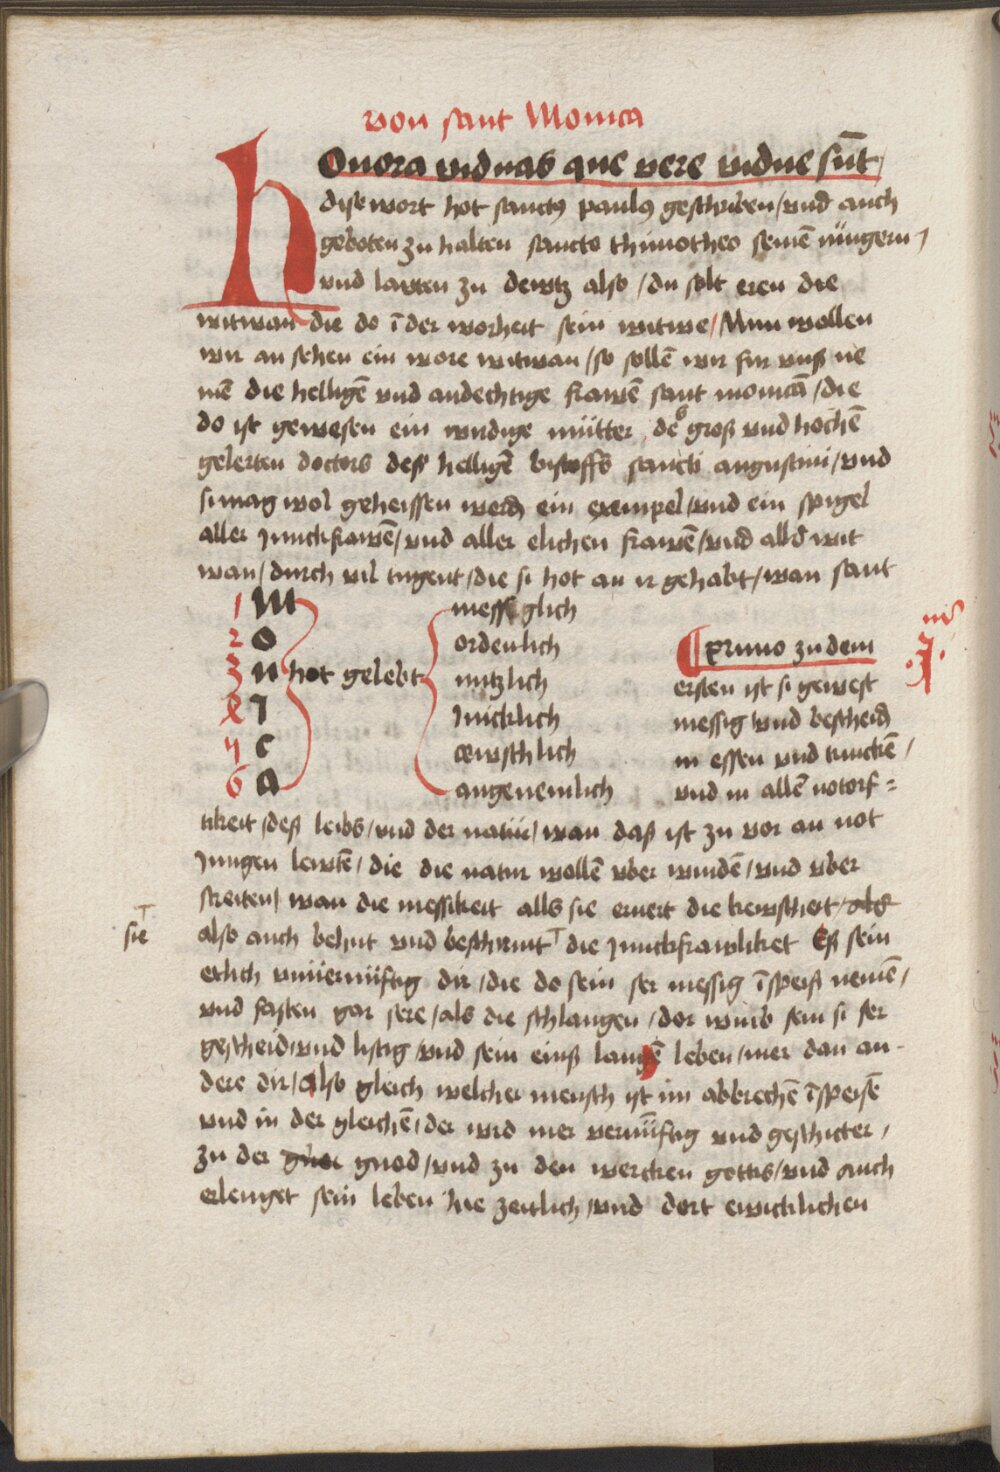 von sant Monica
HOnora viduas que vere vidue su̅t /
dise wort hot sanctꝰ paulꝰ geschriben / vnd auch
geboten zu halten sancto thimotheo seine̅ iüngern /
vnd lawten zu dewtz also / du solt eren die
witwan die do i̅ der worheit sein witwe / Nun wollen
wir an sehen ein wore witwan / so solle̅ wir fur vnß ne
me̅ die hellige̅ vnd andechtige frawe̅ sant monica̅ / die
do ist gewesen ein wirdige mütter de° groß vnd hoche̅
gelerten doctors deß hellige̅ bistoffs sancti augustini / vnd
si mag wol geheissen werdn ein exempel / vnd ein spigel
aller Junckfrawe̅ / vnd aller elichen frawe̅ / vnd allr wit
wan / durch vil tugent / die si hot an ir gehabt / wan sant
1 M messiglich
2 O ordenlich
3 N hot gelebt nutzlich
4 I Juncklich
5 C cewschlich
6 A angenemlich
¶ Primo zu dem
ersten ist si gewest
messig vnd bescheidn
in essen vnd trincke̅ /
vnd in alle̅ notorf =
.I.
tikeit / deß leibs / vnd der natür / wan daß ist zu vor an not
Jungen lewte̅ / die die natur wolle̅ vber winde̅ / vnd vber
streiten / wan die messikeit alls sie ernert die kewscheit / als
sie
also auch behut vnd beschirmt die Junckfrawliket Eß sein
etlich vnüernüftig dir / die do sein ser messig i̅ speiß neme̅ /
vnd fasten gar sere / als die schlangen / dor wmb sein si ser
gescheid / vnd listig / vnd sein einß lange̅ leben / mer dan an-
dere dir / also gleich welcher mensch ist im abbreche̅ i̅ speise̅
vnd in der gleiche̅ / der wird mer vernüftig vnd geschickter /
zu der gnod / vnd zu den wercken gottis / vnd auch
erlenget sein leben hie zeitlich / vnd dort ewicklichen